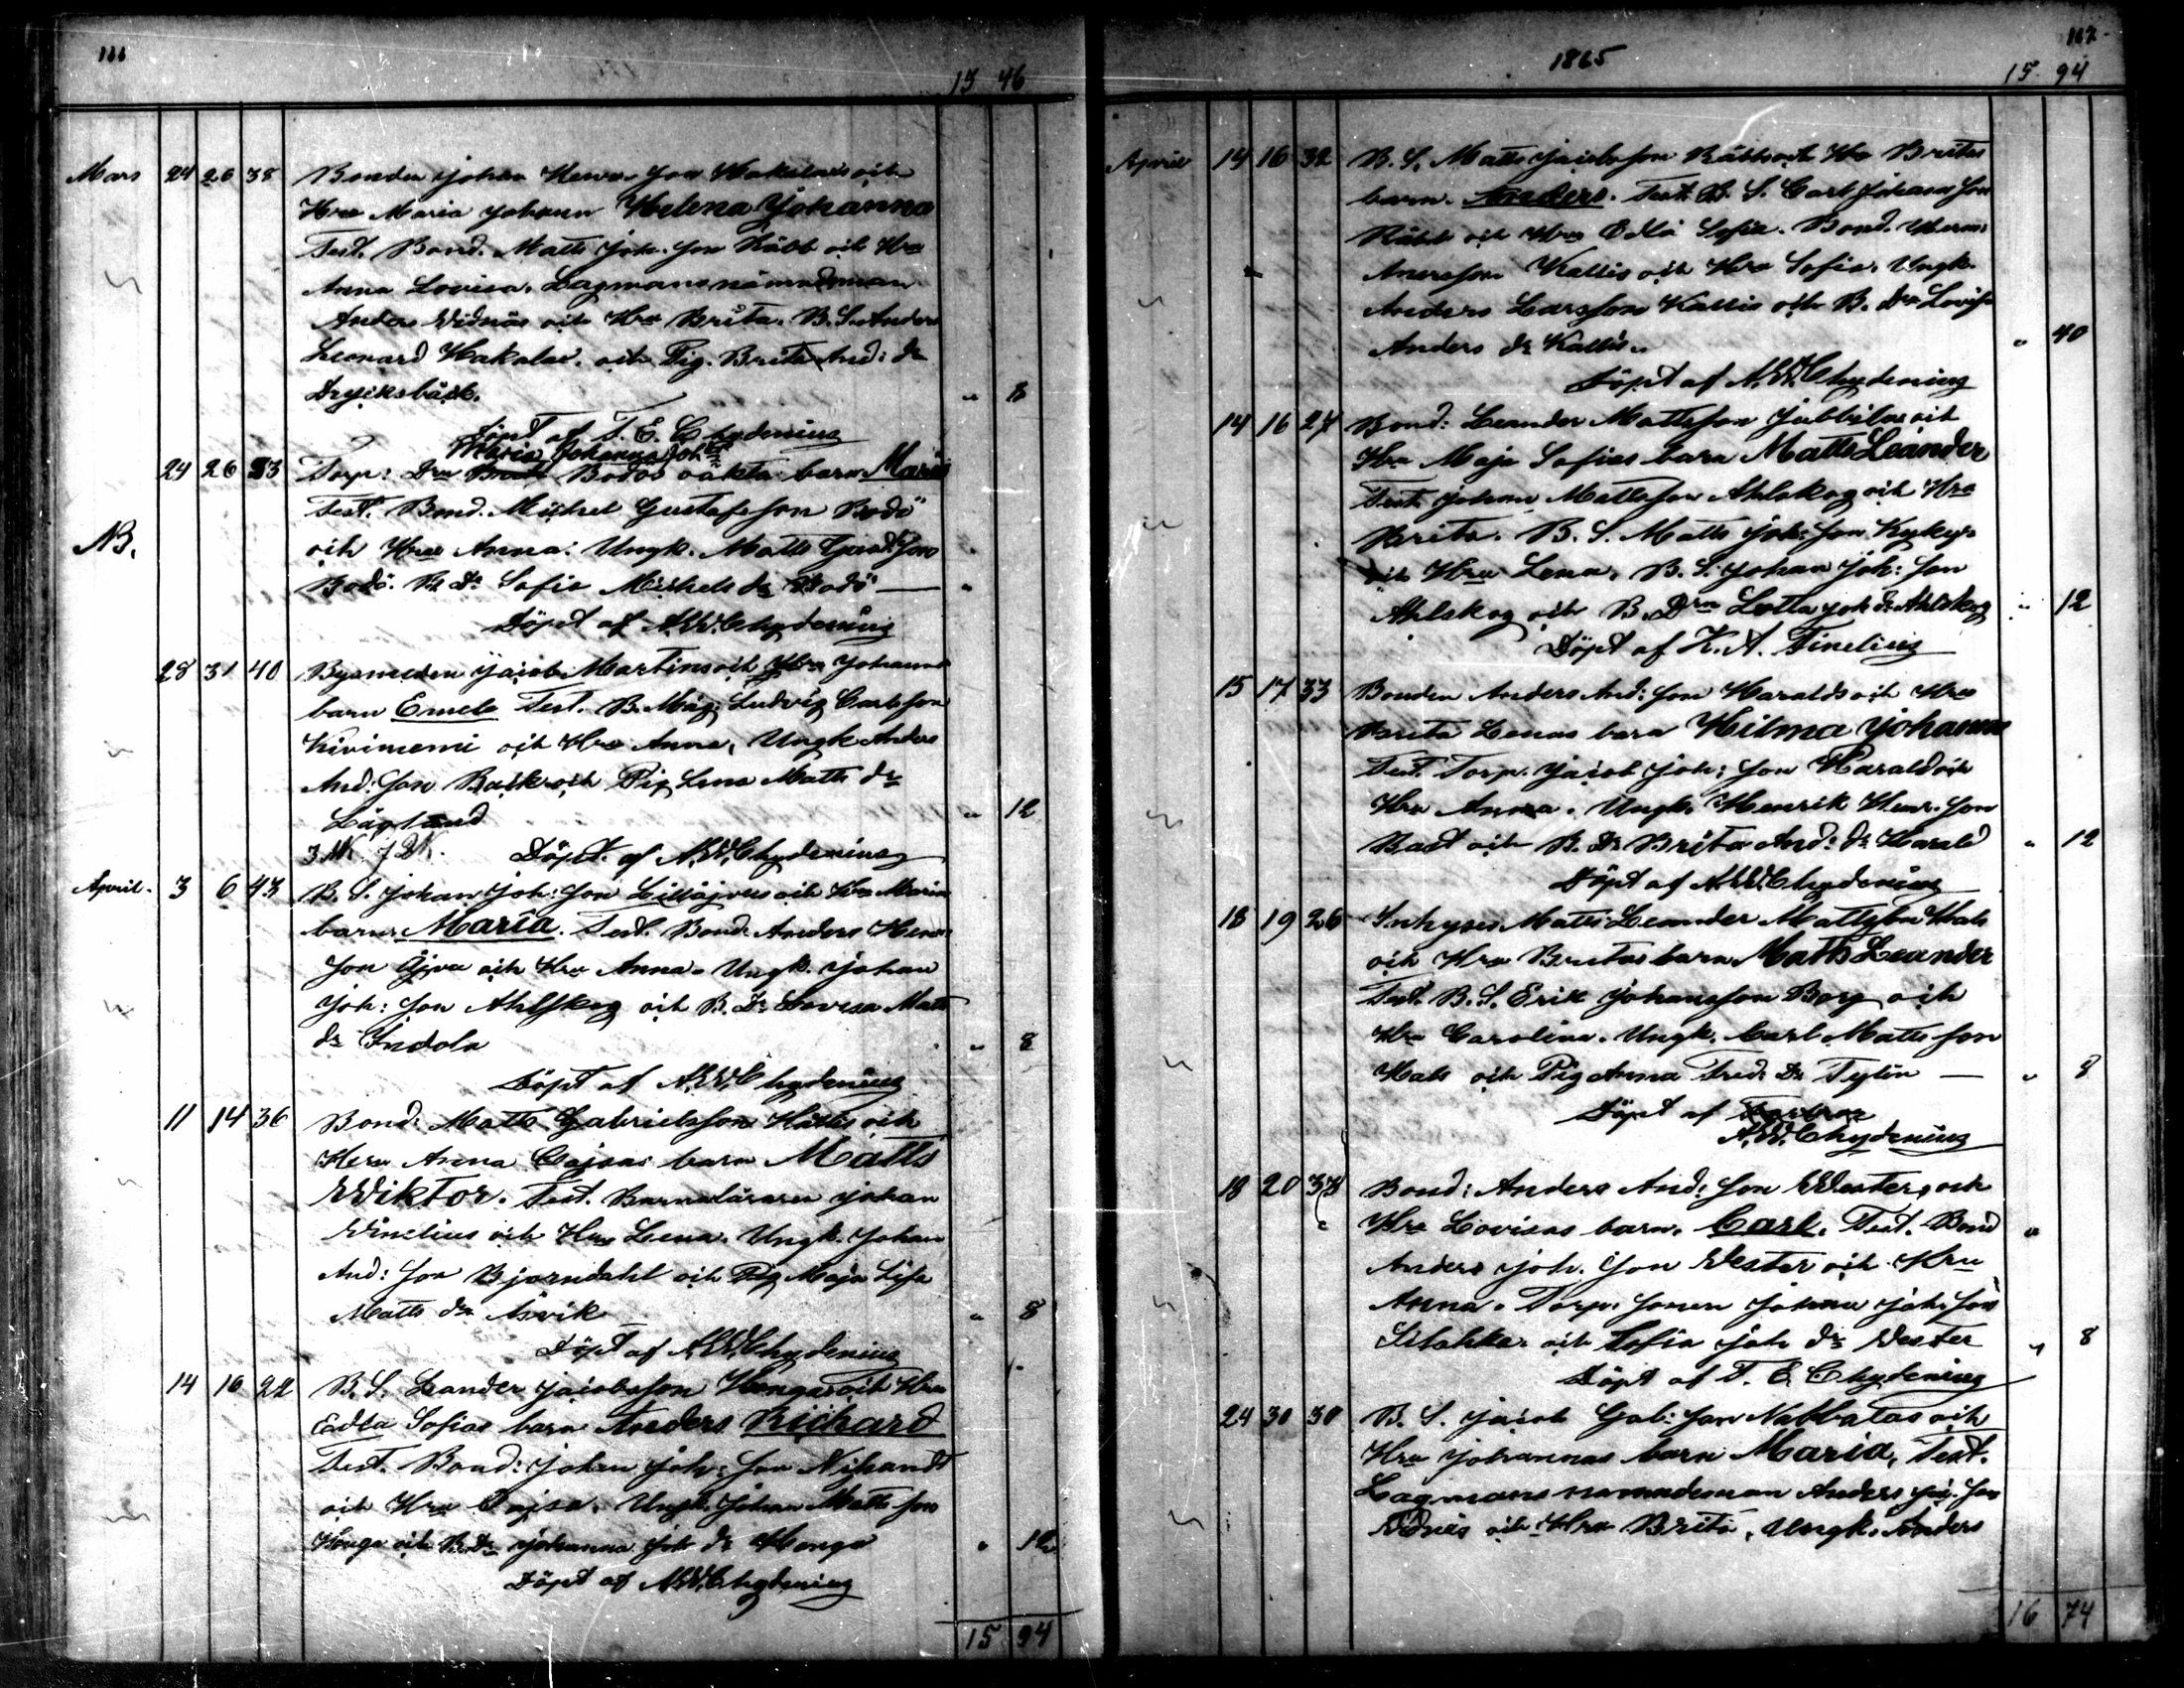 111
15 46
Mars 24 26 38 Bonden Johan Henr. Son Hakalas och
Hru Maria Johann Helena Johanna
Test. Bond. Matts Joh. Son Käbb och Hru
Anna Lovisa. Lagmansnämndeman
Anders Widnäs och Hru Brita. B.S. Anders
Leonard Hakalas. och Pig. Brita And: dr
Drycksbäck. " 8
Döpt af F. E. Chydenius
Maria Johanna Joh dr
24 26 33 Torp: Drn Bodös oäkta barn Maria
Test. Bond. Michel Gustafsson Bodö
NB. och Hru Anna. Ungk. Matts Gust. Son
Bodö. B. Dr Sofia Michels dr Bodö — "
Döpt af A.W. Chydenius
28 31 40 Bysmeden Jacob Martins och Hru Johannas
barn Emele Test. B. Måg. Ludvig Carlsson
Kiviniemi och Hru Anna, Ungk Anders
And: Son Back och Pig Lena Matts dr
Låglund " 12
3 M. 7 D. Döpt. af A.W. Chydenius
April. 3 6 43 B. S. Johan Joh: Son Lillåjvas och Hru Marias
barn Maria. Test. Bond. Anders Henr:
Son Åjva och Hru Anna. Ungk. Johan
Joh: Son Ahlskog och B. Dr Lovisa Matts
dr Indola " 8
Döpt af A.W. Chydenius
11 14 36 Bond: Matts Gabrielsson Kattis och
Hru Anna Cajsas barn Matts
Wiktor. Test. Barnaläraren Johan
Winelius och Hru Lena. Ungk. Johan
And: Son Bjorndahl och Pig Maja Lisa
Matts dr Åsvik " 8
Döpt af A.W. Chydenius
14 16 22 B. S: Leander Jacobsson Hongas och Hru
Edla Sofias barn Anders Richard
Test. Bond: Johan Joh: Son
och Hru Cajsa. Ungk. Johan Matts Son
Honga och B. Dr Johanna Joh dr Honga " 12
Döpt af A.W. Chydenius
15 94
1865
112
15 94
April 14 16 32 B. S. Matts Jacobsson Käbbs och Hru Britas
barn. Anders. Test. B. S. Carl Johansson
Käbb och Hru Edla Sofia. Bond. Herm:
Andersson Kallis och Hru Sofia. Ungk.
Anders Larsson Kallis och B. Drn Lovisa
Anders dr Kallis. " 40
Döpt af A.W. Chydenius
14 16 27 Bond: Leander Mattsson Jubbilas och
Hru Maja Sofias barn Matts Leander
Test. Johan Mattsson Ahlskog och Hru
Brita. B. S. Matts Joh: Son
och Hru Lena, B. S. Johan Joh: Son
Ahlskog och B. Drn Lotta Joh dr Ahlskog " 12
Döpt af K. A. Finelius
15 17 33 Bonden Anders And: Son Haralds och Hru
Brita Lenas barn Hilma Johanna
Test. Torp. Jacob Joh: Son Harald och
Hru Anna. Ungk. Henrik Henr. Son
Bast och B. Dr Brita And: dr Harald " 12
Döpt af A.W. Chydenius
18 19 26 Inhyses Matts Leander Mattsson Hals
och Hru Britas barn Matts Leander
Test. B. S. Erik Johansson Borg och
Hru Carolina. Ungk. Carl Matts Son
Hals och Pig Anna Fred: Dr Tylin — " 8
Döpt af
A.W. Chydenius
18 20 33 Bond: Anders And: Son Westers och
Hru Lovisas barn. Carl. Test. Bond "
Anders Joh. Son Wester och Hru
Anna. Torp. Sonen Johan Joh. Son
och Sofia Joh dr Wester " 8
Döpt af F. E. Chydenius
24 30 30 B. S. Jacob Gab: Son Nabbalas och
Hru Johannas barn Maria, Test.
Lagmans namndeman Anders Joh. Son
Widnäs och Hru Brita, Ungk. Anders
16 74